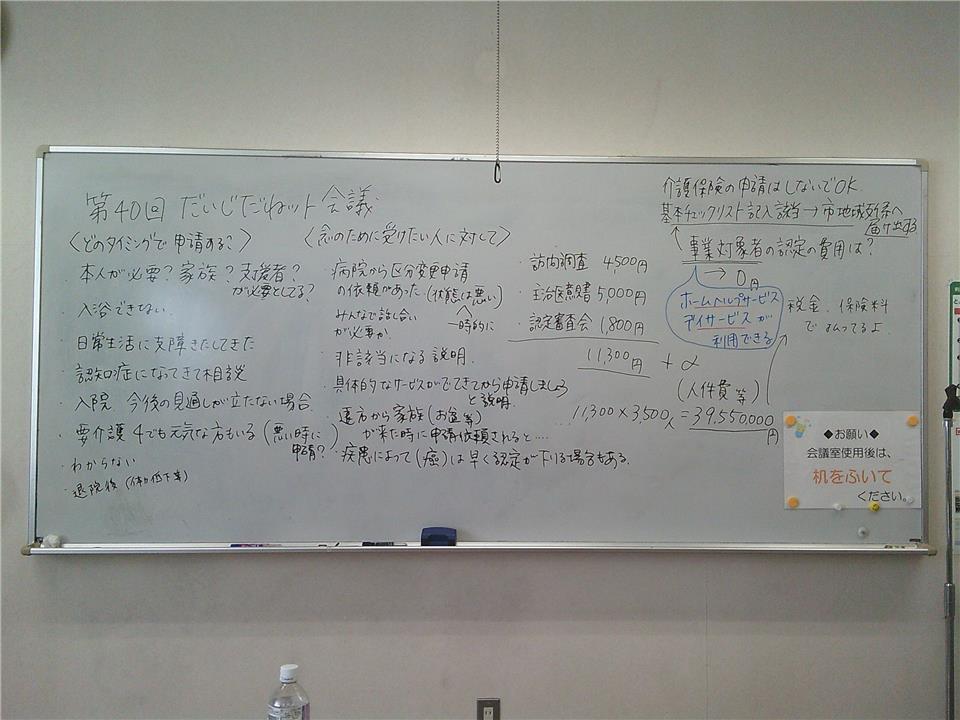 第40回 だいじだねット会議
〈どのタイミングで申請する?〉
・本人が必要?家族?支援者?
が必要としてる?
・入浴できない
・日常生活に支障きたしてきた
・認知症になってきて相談
・入院、今後の見通しが立たない場合
・要介護4でも元気な方もいる(悪い時に
申請?)
・わからない
・退院後(体力低下等)
〈念のために受けたい人に対して〉
・病院から区分変更申請
の依頼があった(状態は悪い)
一時的に
みんなで話し合い
が必要か
・非該当になる説明
・具体的なサービスがでてきてから申請しましょう
と説明
・遠方から家族(お盆等)
が来た時に申請依頼されると‥‥
・疾患によって(癌)は早く認定が下りる場合もある。
・訪問調査 4,500円
・主治医意見書 5,000円
・認定審査会 1,800円
11,300円 + α
(人件費等)
11,300×3,500人=39,550,000
円
介護保険の申請はしないでOK
基本チェックリスト記入該当→市地域支援係へ
届け出する
事業対象者の認定の費用は?
→ 0円
ホームヘルプサービス
デイサービスが
利用できる
税金、保険料
で
払ってるよ
◆お願い◆
会議室使用後は、
机をふいて
ください。